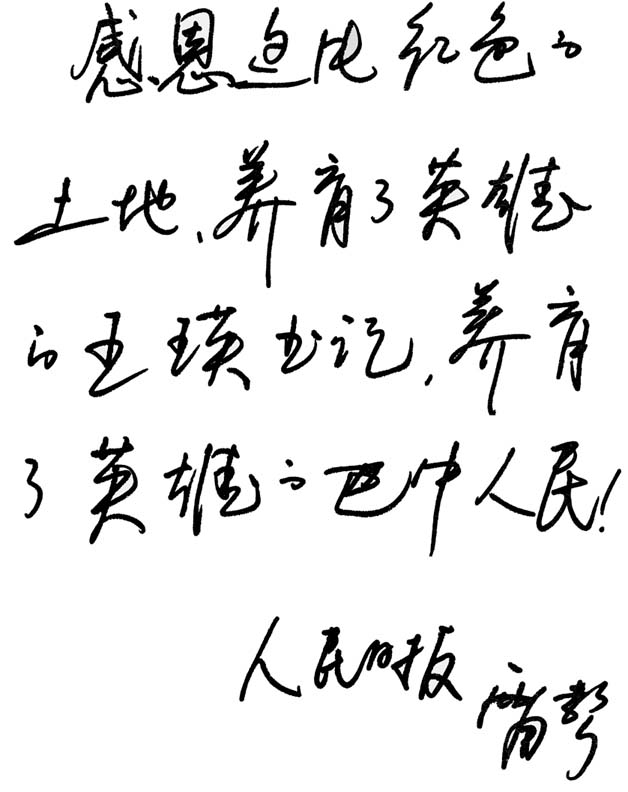 感恩这片红色的
土地、养育了英雄
的王瑛书记，养育
了英雄的巴中人民！
人民日报